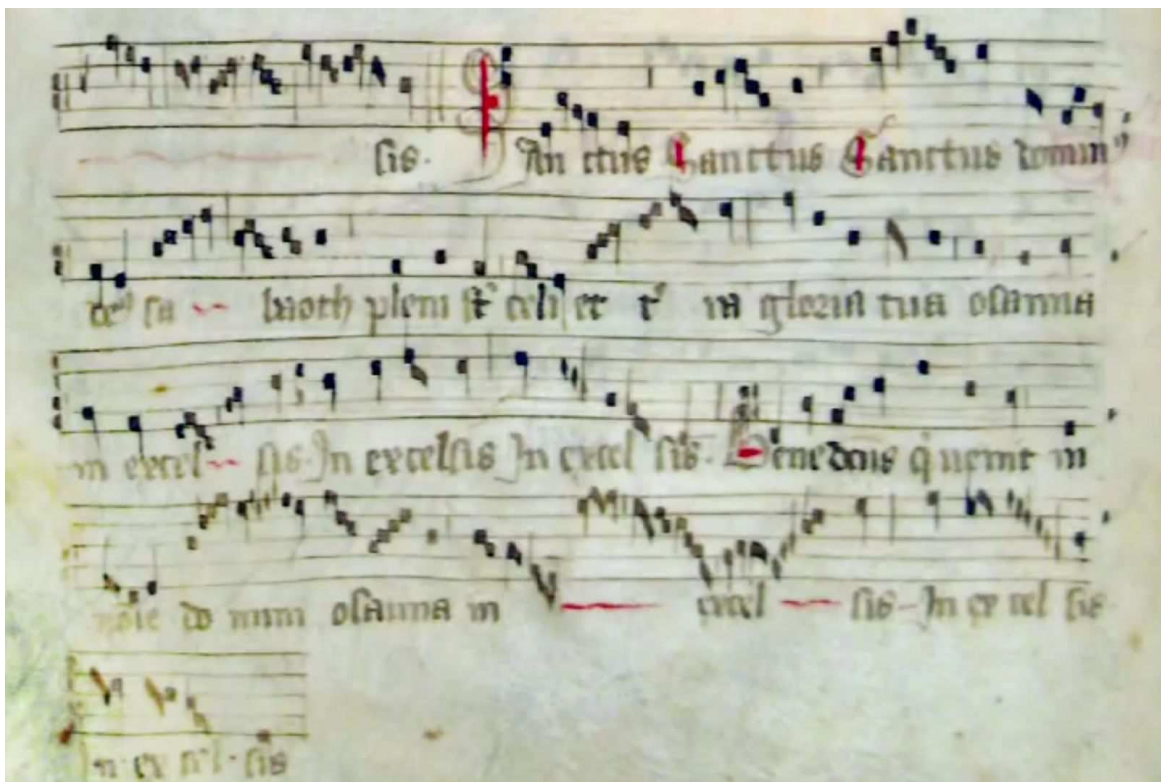 sis. San ctus Sanctus Sanctus domin⁹
de⁹ sa baoth pleni st̄ celi et t̄ in gloria tua osanna
in excel sis. In excelsis In excel sis. Benedctus q̇ uenit in
do mini osanna in excel sis In ex cel sis
In ex sis